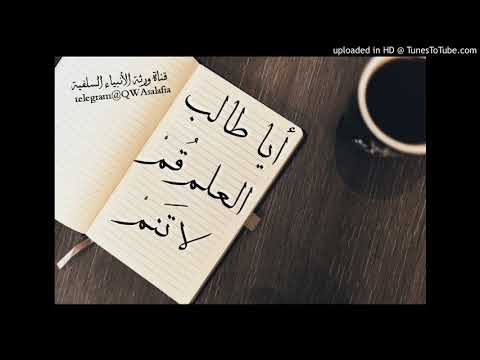 uploaded in HD @ TunesToTube.com
قناة ورثة الأنبياء السلفية
telegram@QWAsalafia
أيا طالب
العلم قُمْ
لا تَنمْ